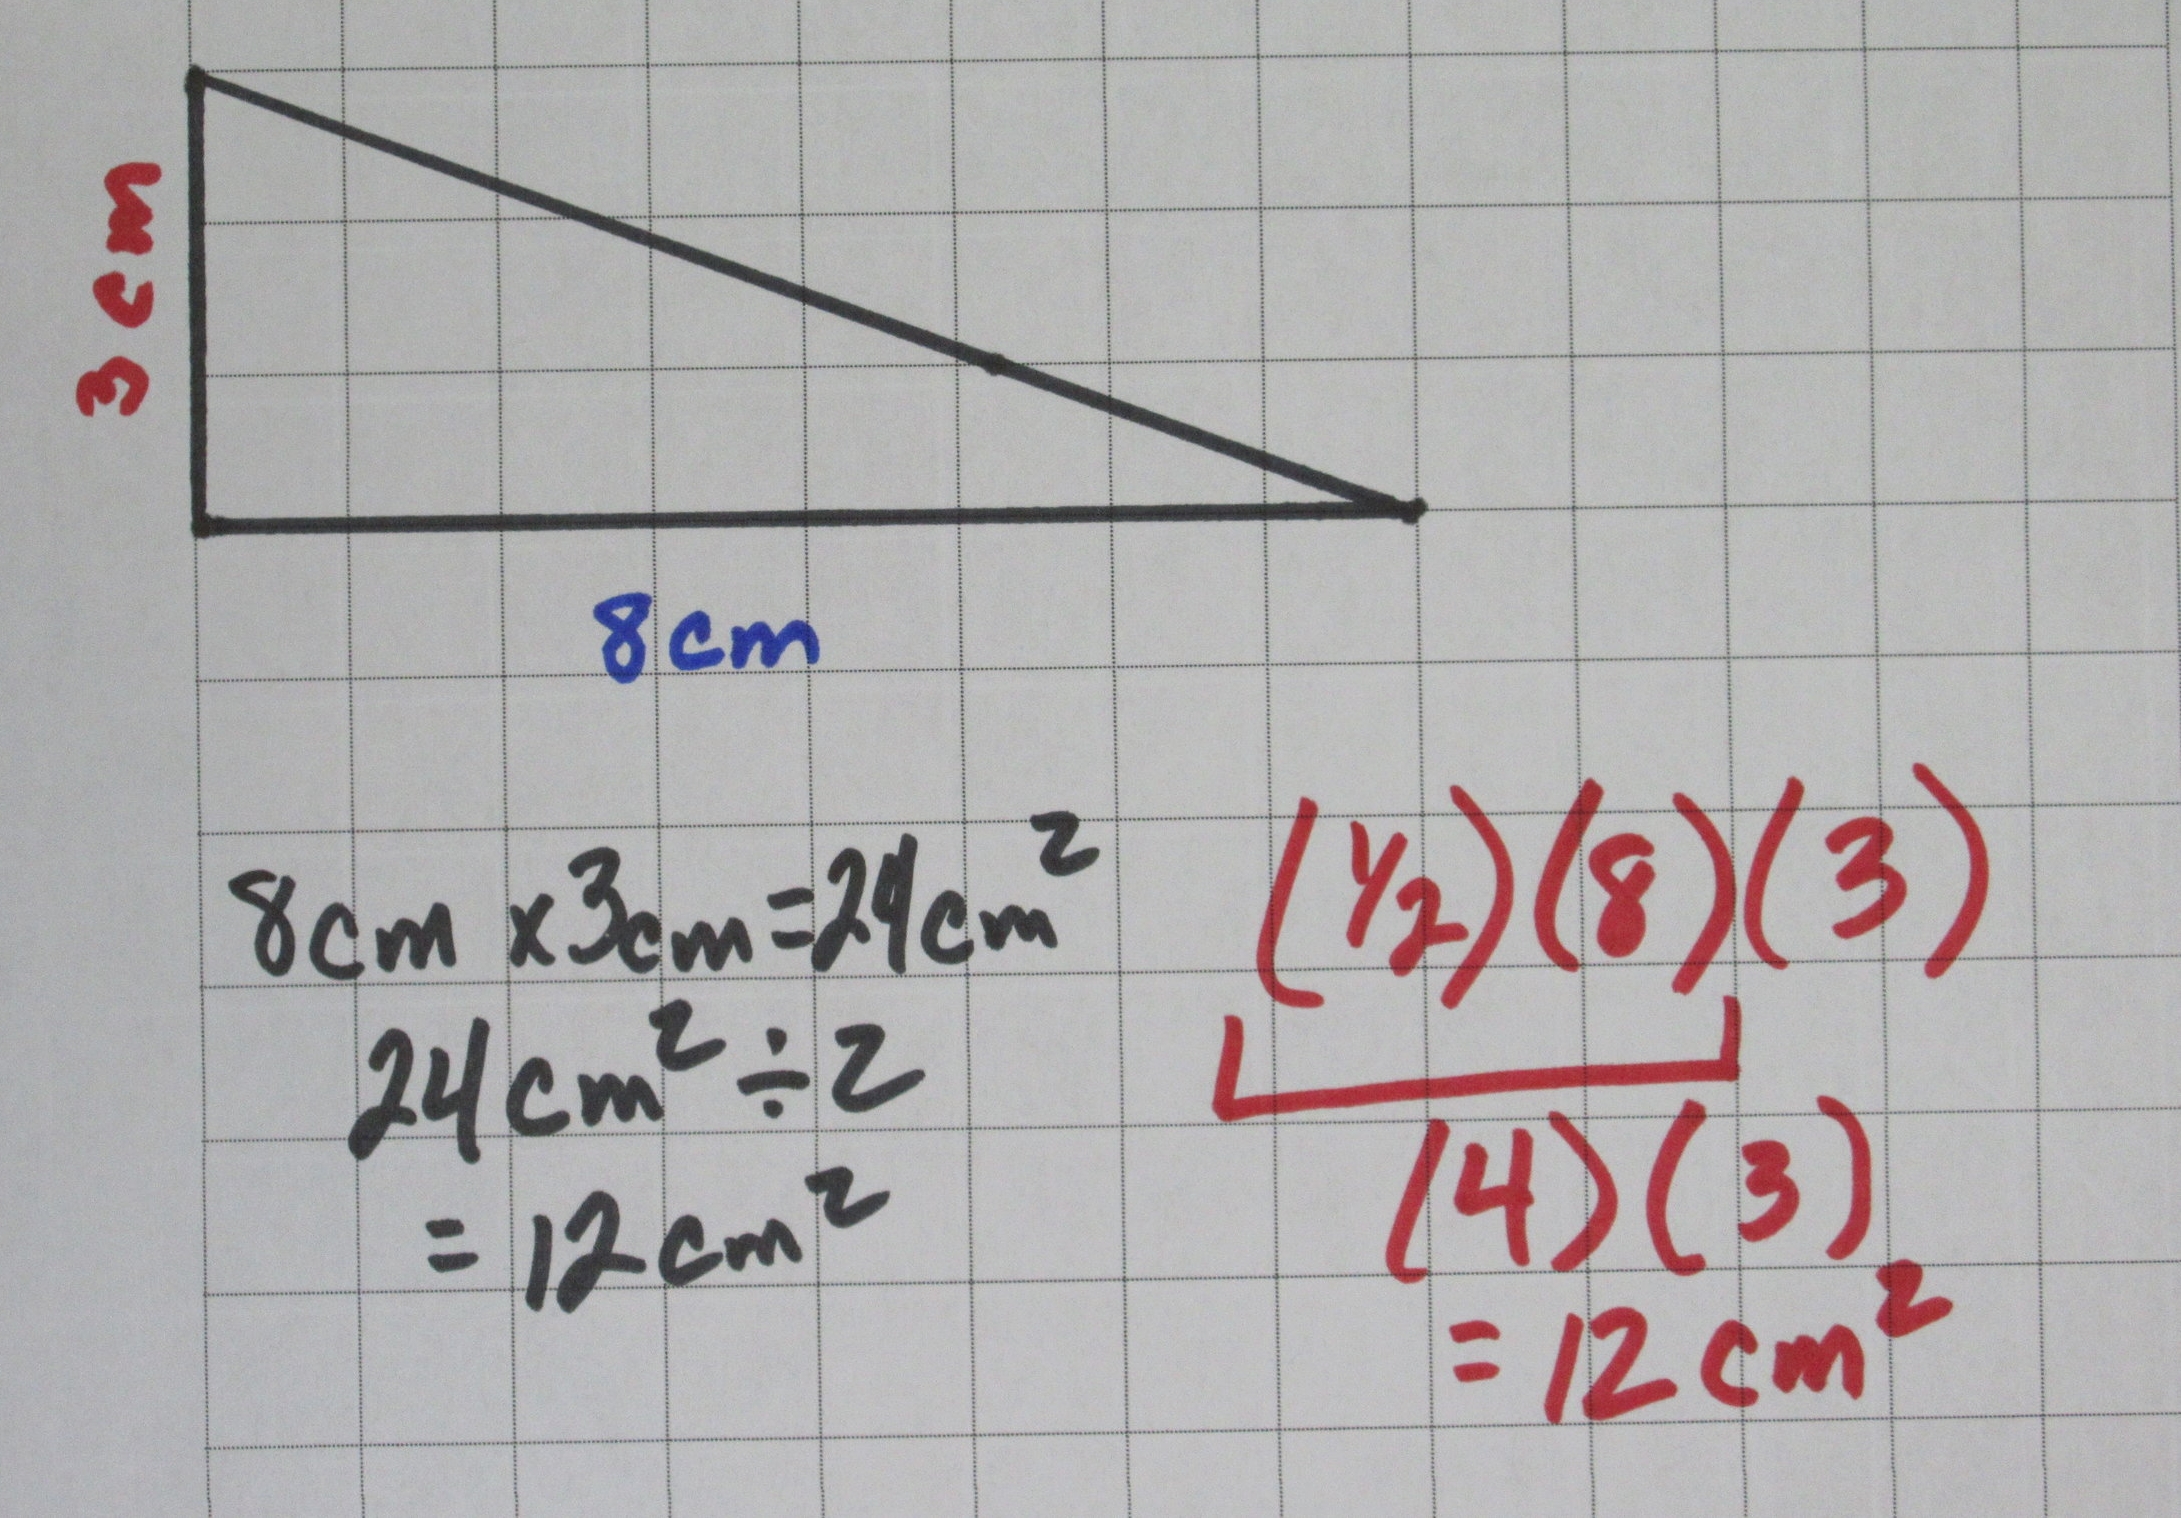 3 cm
8cm
8cm x3cm=24cm²
24cm²÷2
= 12cm²
(1/2)(8)(3)
(4)(3)
= 12 cm²